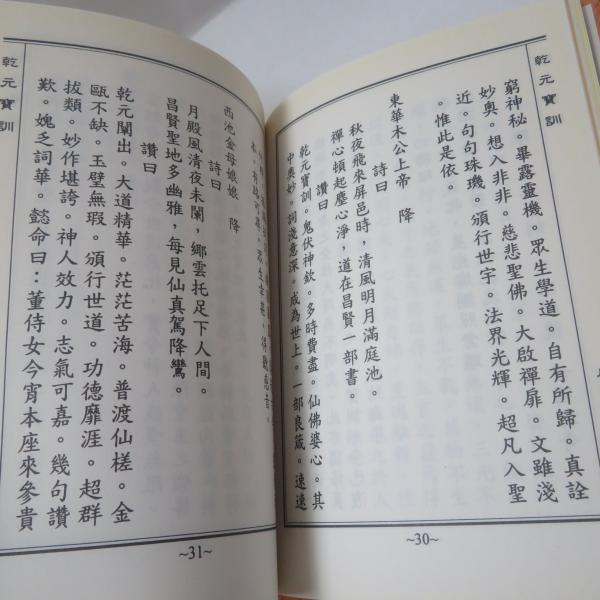 乾元寶訓
窮神秘。畢露靈機。眾生學道。自有所歸。真詮
妙奧。想入非非。慈悲聖佛。大啟禪扉。文雖淺
近。句句珠璣。頒行世宇。法界光輝。超凡入聖
。惟此是依。
東華木公上帝 降
詩曰
秋夜飛來屏邑時，清風明月滿庭池。
禪心頓起塵心淨，道在昌賢一部書。
讚曰
乾元寶訓。鬼伏神欽。多時費盡。仙佛婆心。其
中奧妙。詞淺意深。成為世上。一部良箴。速速
~30~
西池金母娘娘 降
詩曰
月殿風清夜未闌，鄉雲托足下人間。
昌賢聖地多幽雅，每見仙真駕降鸞。
讚曰
乾元闡出。大道精華。茫茫苦海。普渡仙槎。金
甌不缺。玉璧無瑕。頒行世道。功德靡涯。超群
拔類。妙作堪誇。神人效力。志氣可嘉。幾句讚
歎。媿乏詞華。懿命曰：董侍女今宵本座來參貴
乾元寶訓
~31~